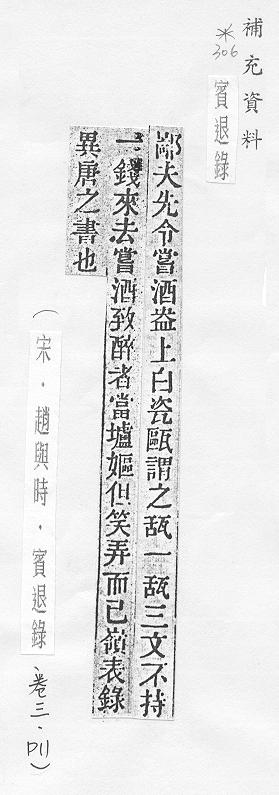 補充資料
*306
賓退錄
鄙夫先令嘗酒盎上白瓷甌謂之㼜一㼜三文不持
一錢來去嘗酒致醉者當壚嫗但笑弄而已嶺表錄
異唐之書也
（宋．趙與時．賓退錄、卷三．P11）